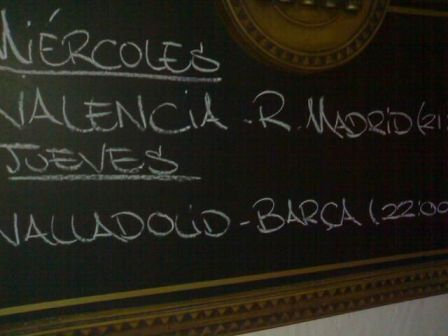 MIÉRCOLES
VALENCIA - R. MADRID (21
JUEVES
VALLADOLID - BARÇA (22:00